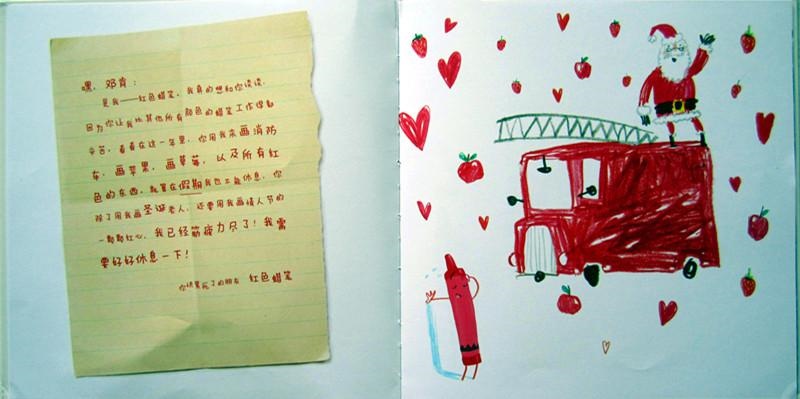 嘿，邓肯：
是我——红色蜡笔，我真的想和你谈谈，
因为你让我比其他所有颜色的蜡笔工作得都
辛苦，看看在这一年里，你用我来画消防
车，画苹果，画草莓，以及所有红
色的东西，就算在假期我也不能休息，你
除了用我画圣诞老人，还要用我画情人节的
一颗颗红心，我已经筋疲力尽了！我需
要好好休息一下！
你快累死了的朋友 红色蜡笔